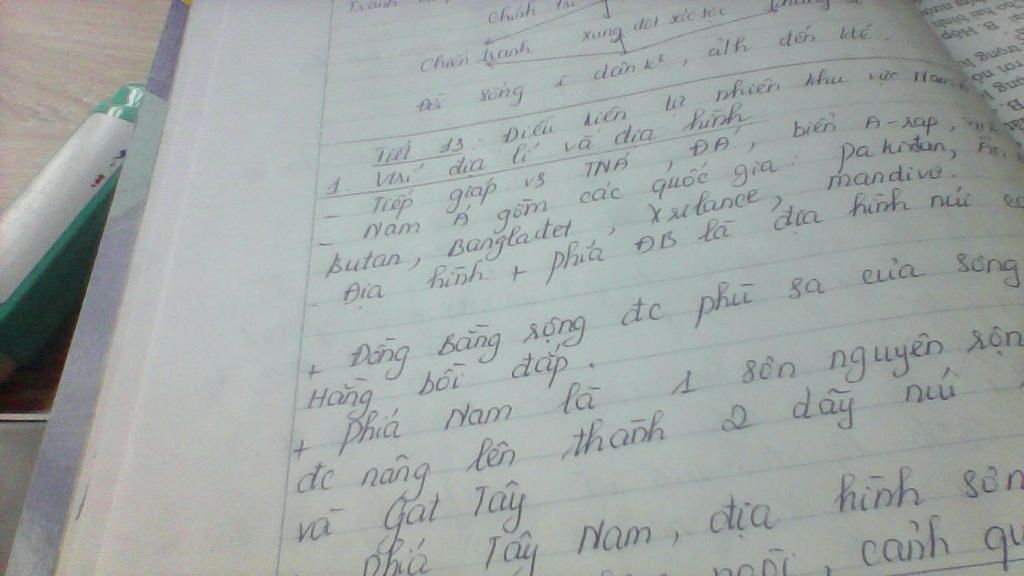 Chính trị
Chiến tranh xung đột sắc tộc
Đời sống dân k², a/h đến ktế.
Tiết 13: Điều kiện tự nhiên khu vực Nam
1. Vị trí địa lí và địa hình
- Tiếp giáp vs TNÁ, ĐÁ, biển A-rap,
- Nam Á gồm các quốc gia: Pakixtan,
Butan, Banglađet, Xrilance, mandivơ.
- Địa hình: + phía ĐB là địa hình núi
+ Đồng bằng rộng đc phù sa của sông
Hằng bồi đắp.
+ phía Nam là 1 sơn nguyên rộn
đc nâng lên thành 2 dãy núi
và Gat Tây
phía Tây Nam, địa hình sơn
ngồi, cảnh qu